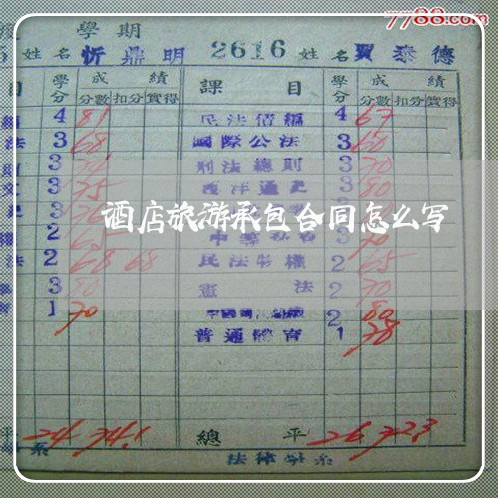 7788.com
學期
姓名 忻鼎明 2616 姓名 賈泰德
目 學分 成績 課目 學分 成績
分數 扣分 實得 分數 扣分 實得
4 81 民法債編 4 67
法 3 68 國際公法 3 60
3 刑法總則 3 70
3 75 西洋通史 3 80
酒店旅游承包合同怎么写
2 3 70
法 2 68 68 民法物權 2 65
3 80 憲法 2 70
1 70 2 80
普通體育 1 78
平 24 74.1 總平 26 72.3
系 法律學系